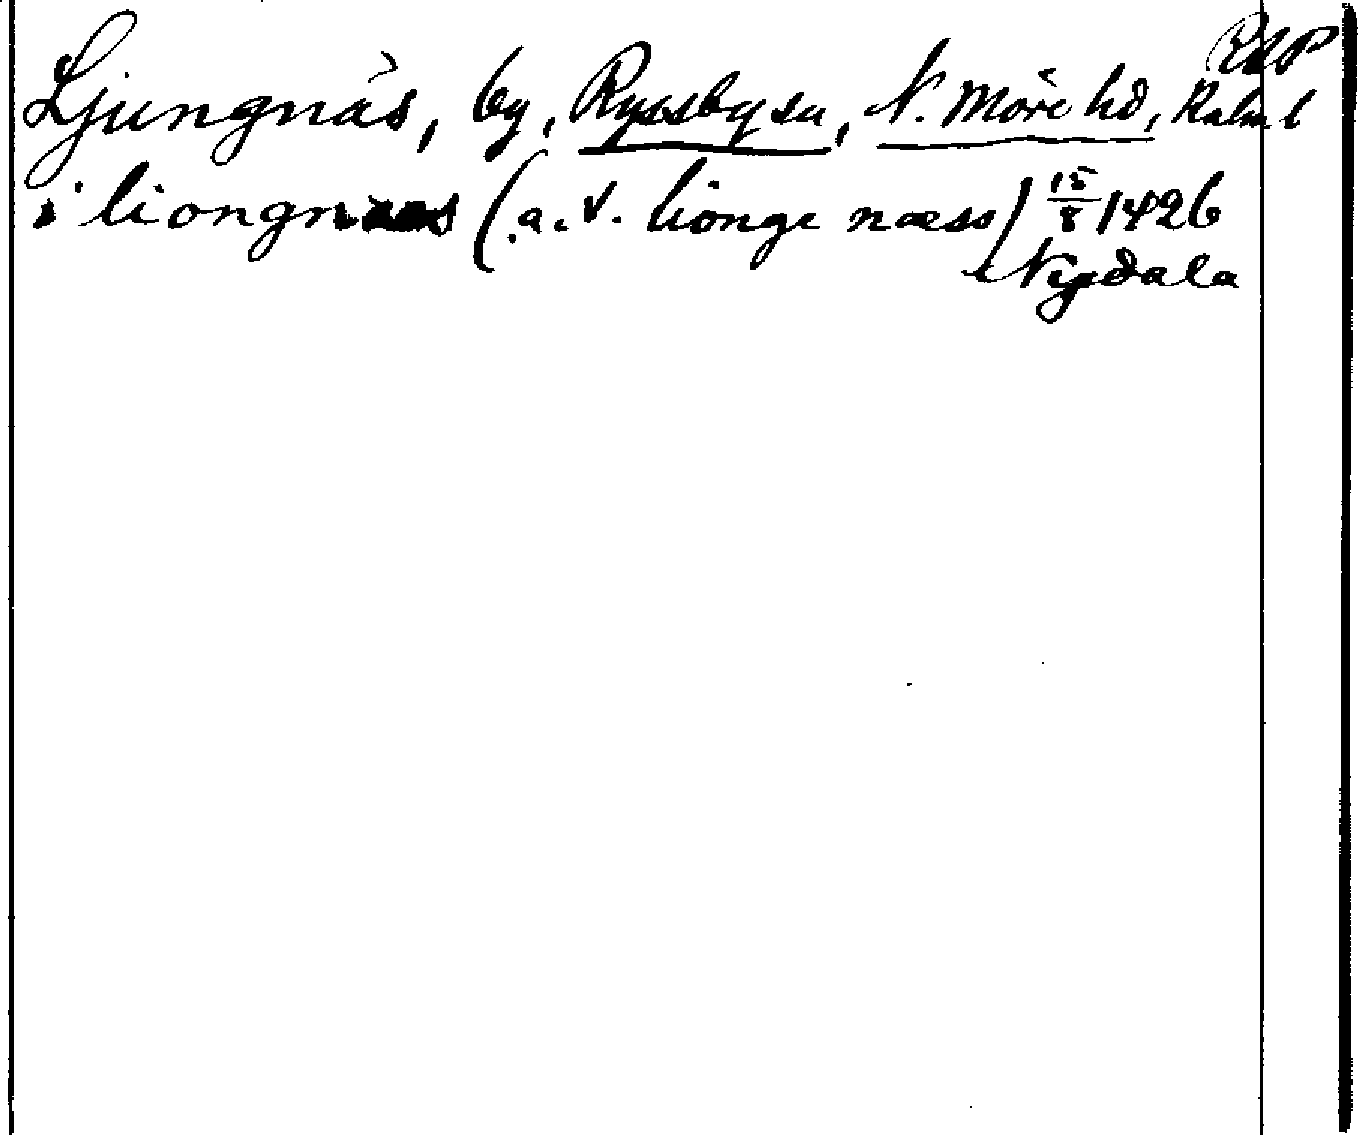 RAP
Ljungnäs, by, Ryssby sn, N. Möre hd, Kalm l
i liongnæs (a. v. lionge næss) 15/8 1426
Nydala